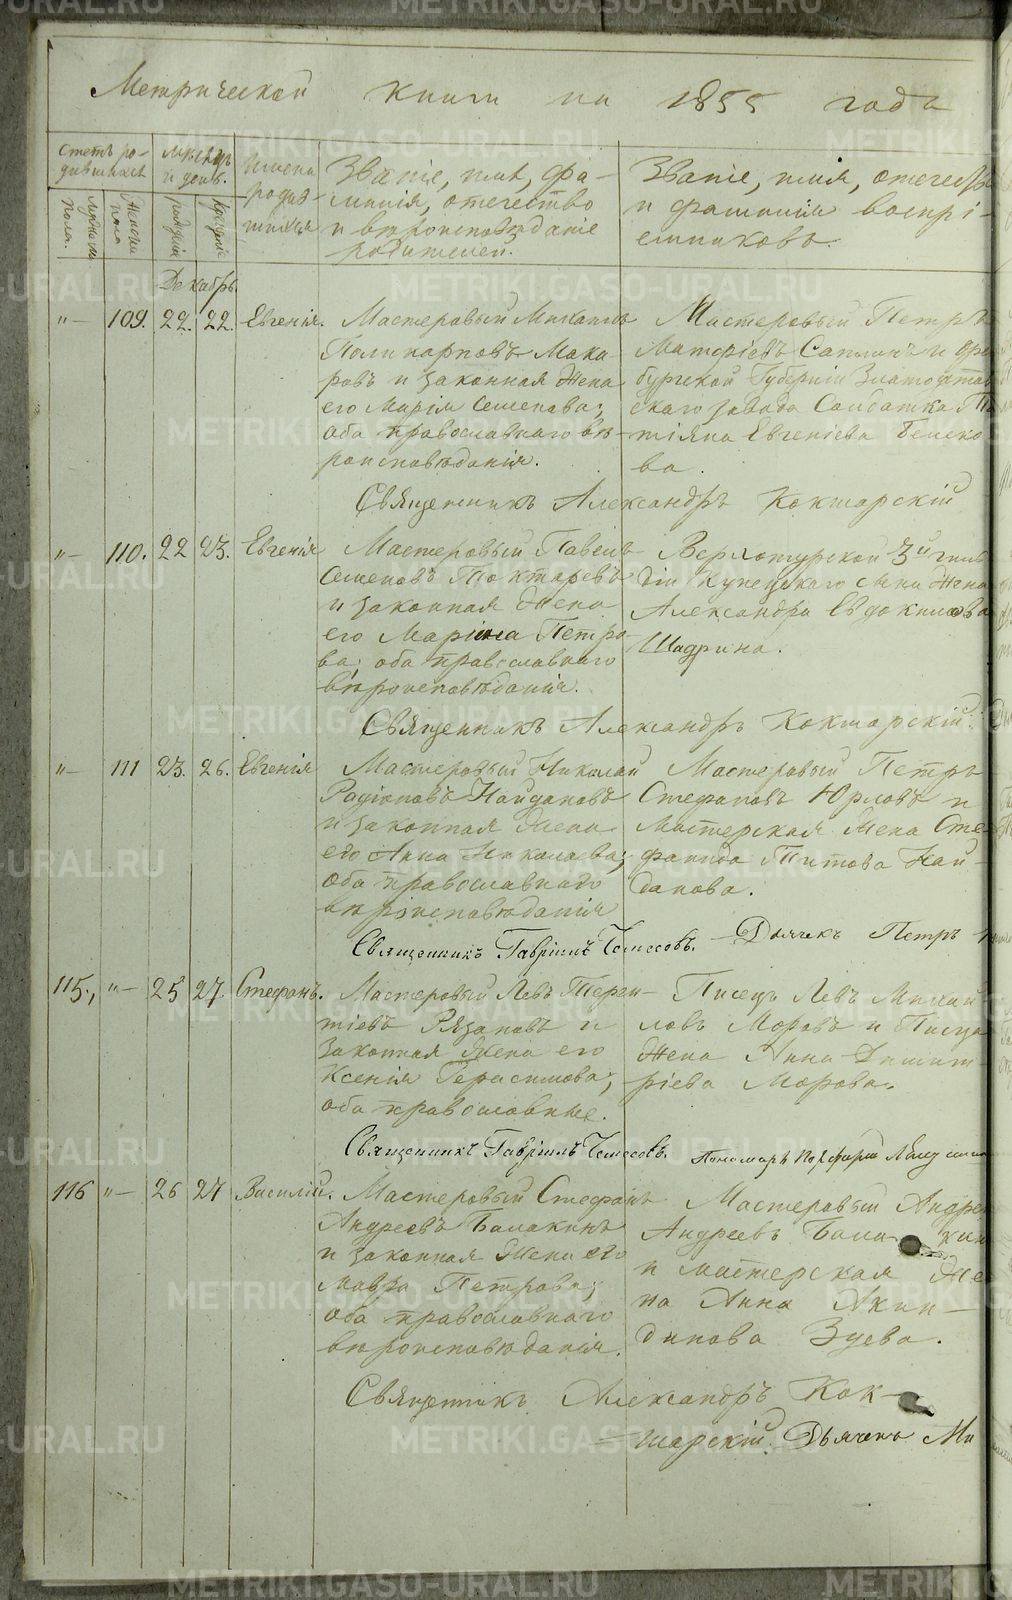 Метрической книги на 1855 года
Счетъ ро-
дившихся
Мужеска
пола.
Женска
пола
Мѣсяцъ
и день.
рожденія
крещенія
Имена
родив-
шихся
Званіе, имя, фа-
милія, отечество
и вѣроисповѣданіе
родителей.
Званіе, имя, отечество
и фамилія воспрі-
емниковъ.
Декабрь.
"— 109. 22. 22. Евгенія.
Мастеровый Михаилъ
Поликарповъ Мака-
ровъ и законная жена
его Марія Семенова;
оба православнаго вѣ-
роисповѣданія.
Мастеровый Петръ
и Орен
бургской Губерніи Златоустов
скаго завода Солдатка Та
тіяна Евгеніева
ва.
Священникъ Александръ Кокшарскій
"— 110. 22 23. Евгенія
Мастеровый Павелъ
Семеновъ Токтаревъ
и законная жена
его Марина Петро-
ва; оба православнаго
вѣроисповѣданія.
Верхотурской 3й гиль
діи купеческаго сына жена
Александра Евдокимова
Шадрина.
Священникъ Александръ Кокшарскій.
"— 111 23. 26. Евгенія
Мастеровый Николай
Радіоновъ Найдановъ
и законная жена
его Анна Николаева;
оба православнаго
вѣроисповѣданія
Мастеровый Петръ
Стефановъ Юрловъ и
мастерская жена Сте
фанида Титова Най-
данова.
Священникъ Гавріилъ Чемесовъ. — Дьячекъ Петръ
115., "— 25 27. Стефанъ.
Мастеровый Левъ Терен-
тіевъ Рязановъ и
законная жена его
Ксенія Герасимова;
оба православные.
Писецъ Левъ Михай
ловъ Моровъ и Писца
жена Анна Димит-
ріева Морова.
Священникъ Гавріилъ Чемесовъ. Пономарь Порфирій
116 "— 26 27 Василій.
Мастеровый Стефанъ
Андреевъ Балакинъ
и законная жена его
Мавра Петрова;
оба православнаго
вѣроисповѣданія.
Мастеровый Андрей
Андреевъ Балакин
и мастерская же
на Анна Акин-
динова Зуева.
Священникъ Александръ Кок-
шарскій. Дьячекъ Ми
METRIKI.GASO-URAL.RU